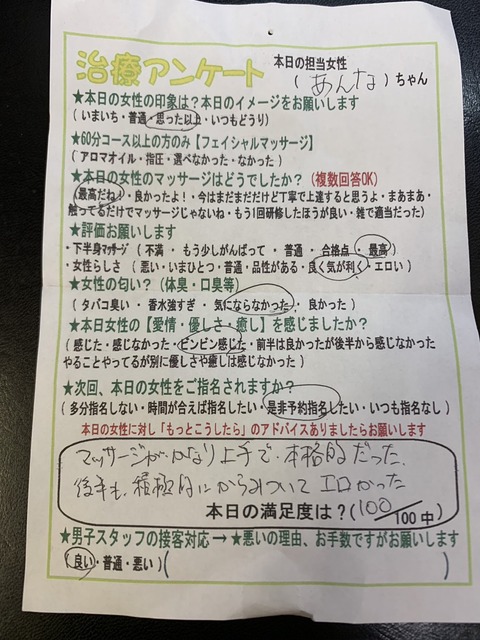 治療アンケート
本日の担当女性
( あんな ) ちゃん
★本日の女性の印象は？本日のイメージをお願いします
( いまいち・普通・思った以上・いつもどうり )
★60分コース以上の方のみ【フェイシャルマッサージ】
( アロマオイル・指圧・選べなかった・なかった )
★本日の女性のマッサージはどうでしたか？(複数回答OK)
(最高だね！・良かったよ！・今はまだまだだけど丁寧で上達すると思うよ・まあまあ・
触ってるだけでマッサージじゃないね・もう1回研修したほうが良い・雑で適当だった)
★評価お願いします
・下半身マッサージ ( 不満 ・ もう少しがんばって ・ 普通 ・ 合格点 ・ 最高 )
・女性らしさ ( 悪い・いまひとつ・普通・品性がある・良く気が利く・エロい )
★女性の匂い？ (体臭・口臭等)
( タバコ臭い ・ 香水強すぎ ・ 気にならなかった ・ 良かった )
★本日女性の【愛情・優しさ・癒し】を感じましたか？
(感じた・感じなかった・ビンビン感じた・前半は良かったが後半から感じなかった
やることやってるが別に優しさや癒しは感じなかった )
★次回、本日の女性をご指名されますか？
( 多分指名しない・時間が合えば指名したい・是非予約指名したい・いつも指名なし )
本日の女性に対し「もっとこうしたら」のアドバイスありましたらお願いします
マッサージがかなり上手で、本格的だった。
後半も、積極的にからみついてエロかった
本日の満足度は？(100/100中)
★男子スタッフの接客対応 → ★悪いの理由、お手数ですがお願いします
(良い・普通・悪い ) ( )